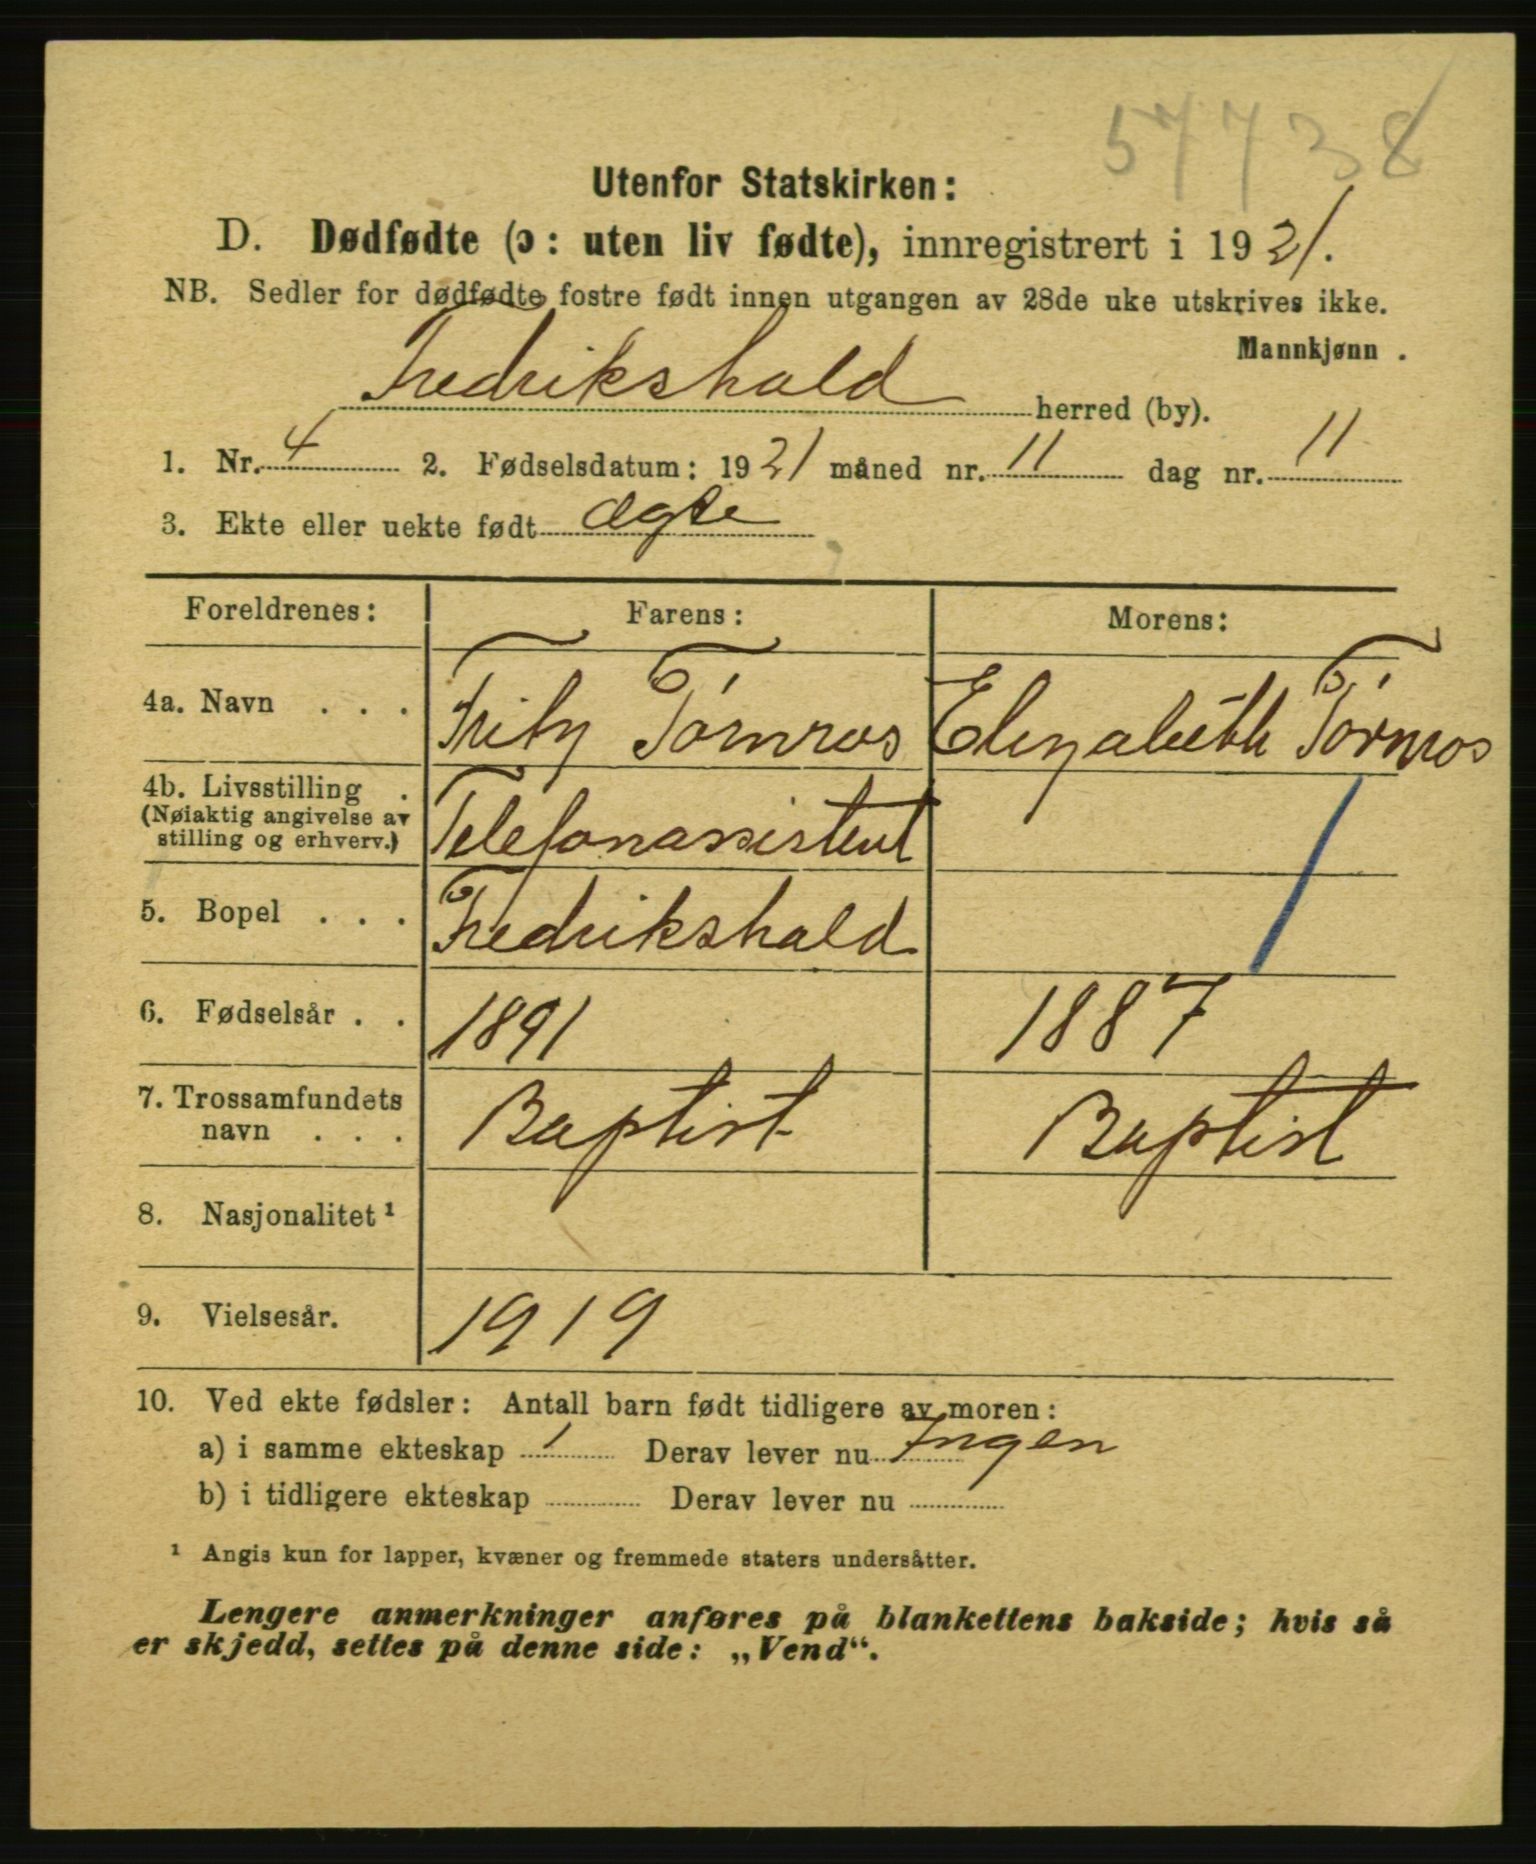 57738
Utenfor Statskirken:
D. Dødfødte (ɔ: uten liv fødte), innregistrert i 1921.
NB. Sedler for dødfødte fostre født innen utgangen av 28de uke utskrives ikke.
Mannkjønn.
Fredrikshald herred (by).
1. Nr. 4 2. Fødselsdatum: 1921 måned nr. 11 dag nr. 11
3. Ekte eller uekte født ægte
Foreldrenes: Farens: Morens:
4a. Navn . . . Fritz Törnros Elizabeth Törnros
4b. Livsstilling .
(Nøiaktig angivelse av
stilling og erhverv.) Telefonassistent
5. Bopel . . . Fredrikshald
6. Fødselsår . . 1891 1887
7. Trossamfundets
navn . . . Baptist Baptist
8. Nasjonalitet¹
9. Vielsesår. 1919
10. Ved ekte fødsler: Antall barn født tidligere av moren:
a) i samme ekteskap 1 Derav lever nu Ingen
b) i tidligere ekteskap Derav lever nu
¹ Angis kun for lapper, kvæner og fremmede staters undersåtter.
Lengere anmerkninger anføres på blankettens bakside; hvis så
er skjedd, settes på denne side: „Vend“.